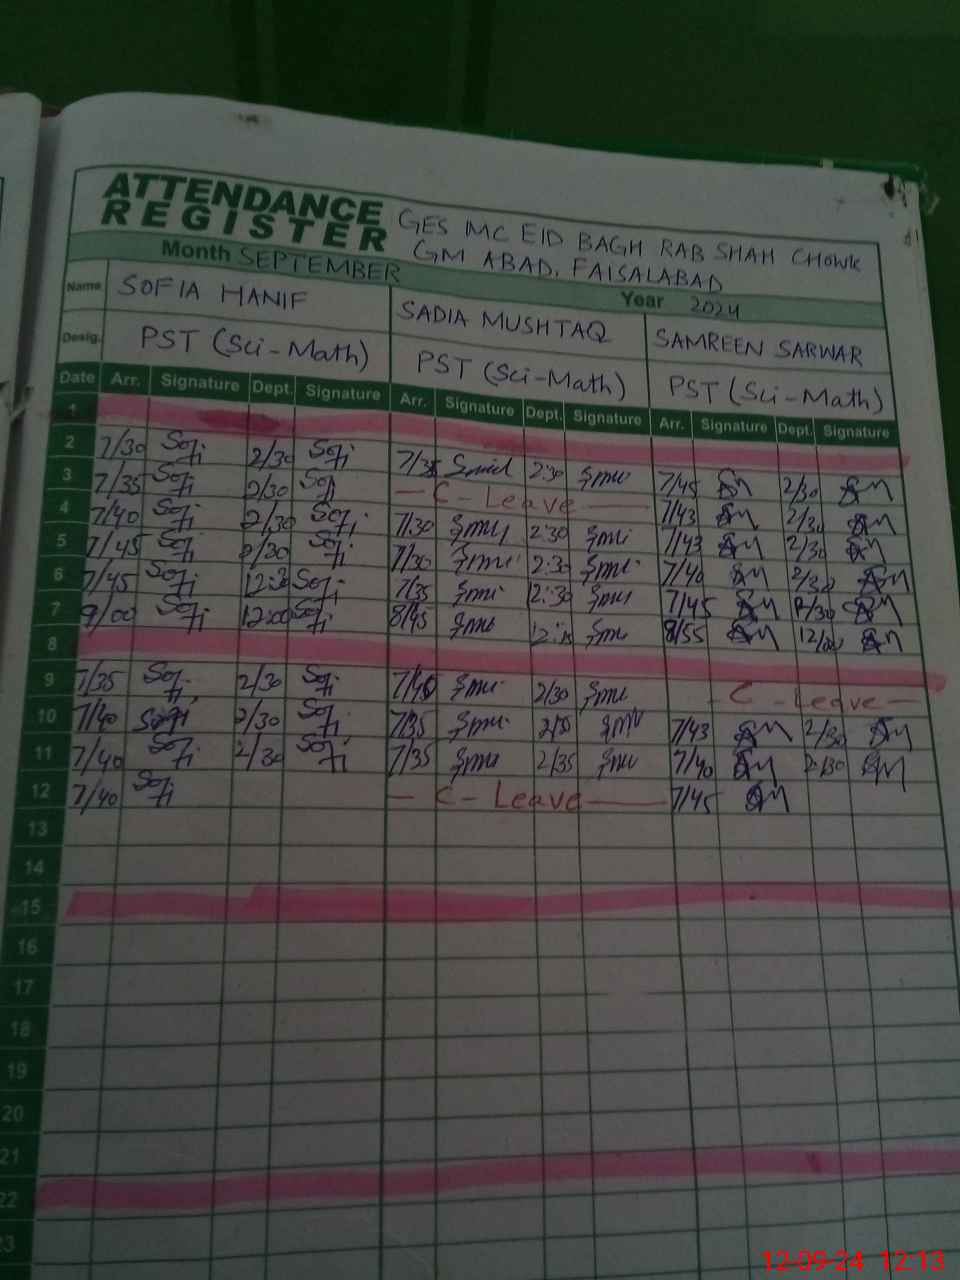 ATTENDANCE
REGISTER
GES MC EID BAGH RAB SHAH CHOWK
GM ABAD, FAISALABAD
Month SEPTEMBER Year 2024
Name SOFIA HANIF SADIA MUSHTAQ SAMREEN SARWAR
Desig. PST (Sci-Math) PST (Sci-Math) PST (Sci-Math)
Date Arr. Signature Dept. Signature Arr. Signature Dept. Signature Arr. Signature Dept. Signature
1
2 7/30 Sofi 2/30 Sofi 7/35 2:30 7/45 SM 2/30 SM
3 7/35 Sofi 2/30 Sofi - C - Leave - 7/43 SM 2/30 SM
4 7/40 Sofi 2/30 Sofi 7/30 2:30 7/43 SM 2/30 SM
5 7/45 Sofi 2/30 Sofi 7/30 2:30 7/40 SM 2/30 SM
6 7/45 Sofi 12:30 Sofi 7/35 12:30 7/45 SM SM
7 9/00 Sofi 12:00 Sofi 8/45 8/55 SM 12/00 SM
8
9 7/35 Sofi 2/30 Sofi 7/45 2/30 - C - Leave -
10 7/40 Sofi 2/30 Sofi 7/35 7/43 SM 2/30 SM
11 7/40 Sofi 2/30 Sofi 7/35 2/35 7/40 SM 2:30 SM
12 7/40 Sofi - C - Leave - 7/45 SM
13
14
15
16
17
18
19
20
21
22
23
12-09-24 12:13